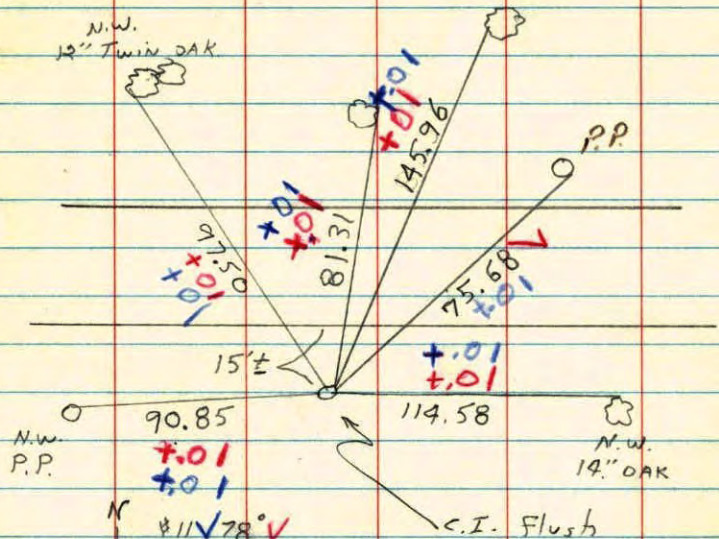 N.W.
12" TWIN OAK
+.01
+.01
145.96
P.P.
+.01
+.01
81.31
97.50
+.01
+.01
75.68 ✓
+.01
15'±
+.01
+.01
90.85
114.58
N.W.
P.P.
+.01
+.01
N.W.
14" OAK
N
#11 ✓ 78° ✓
C.I. Flush